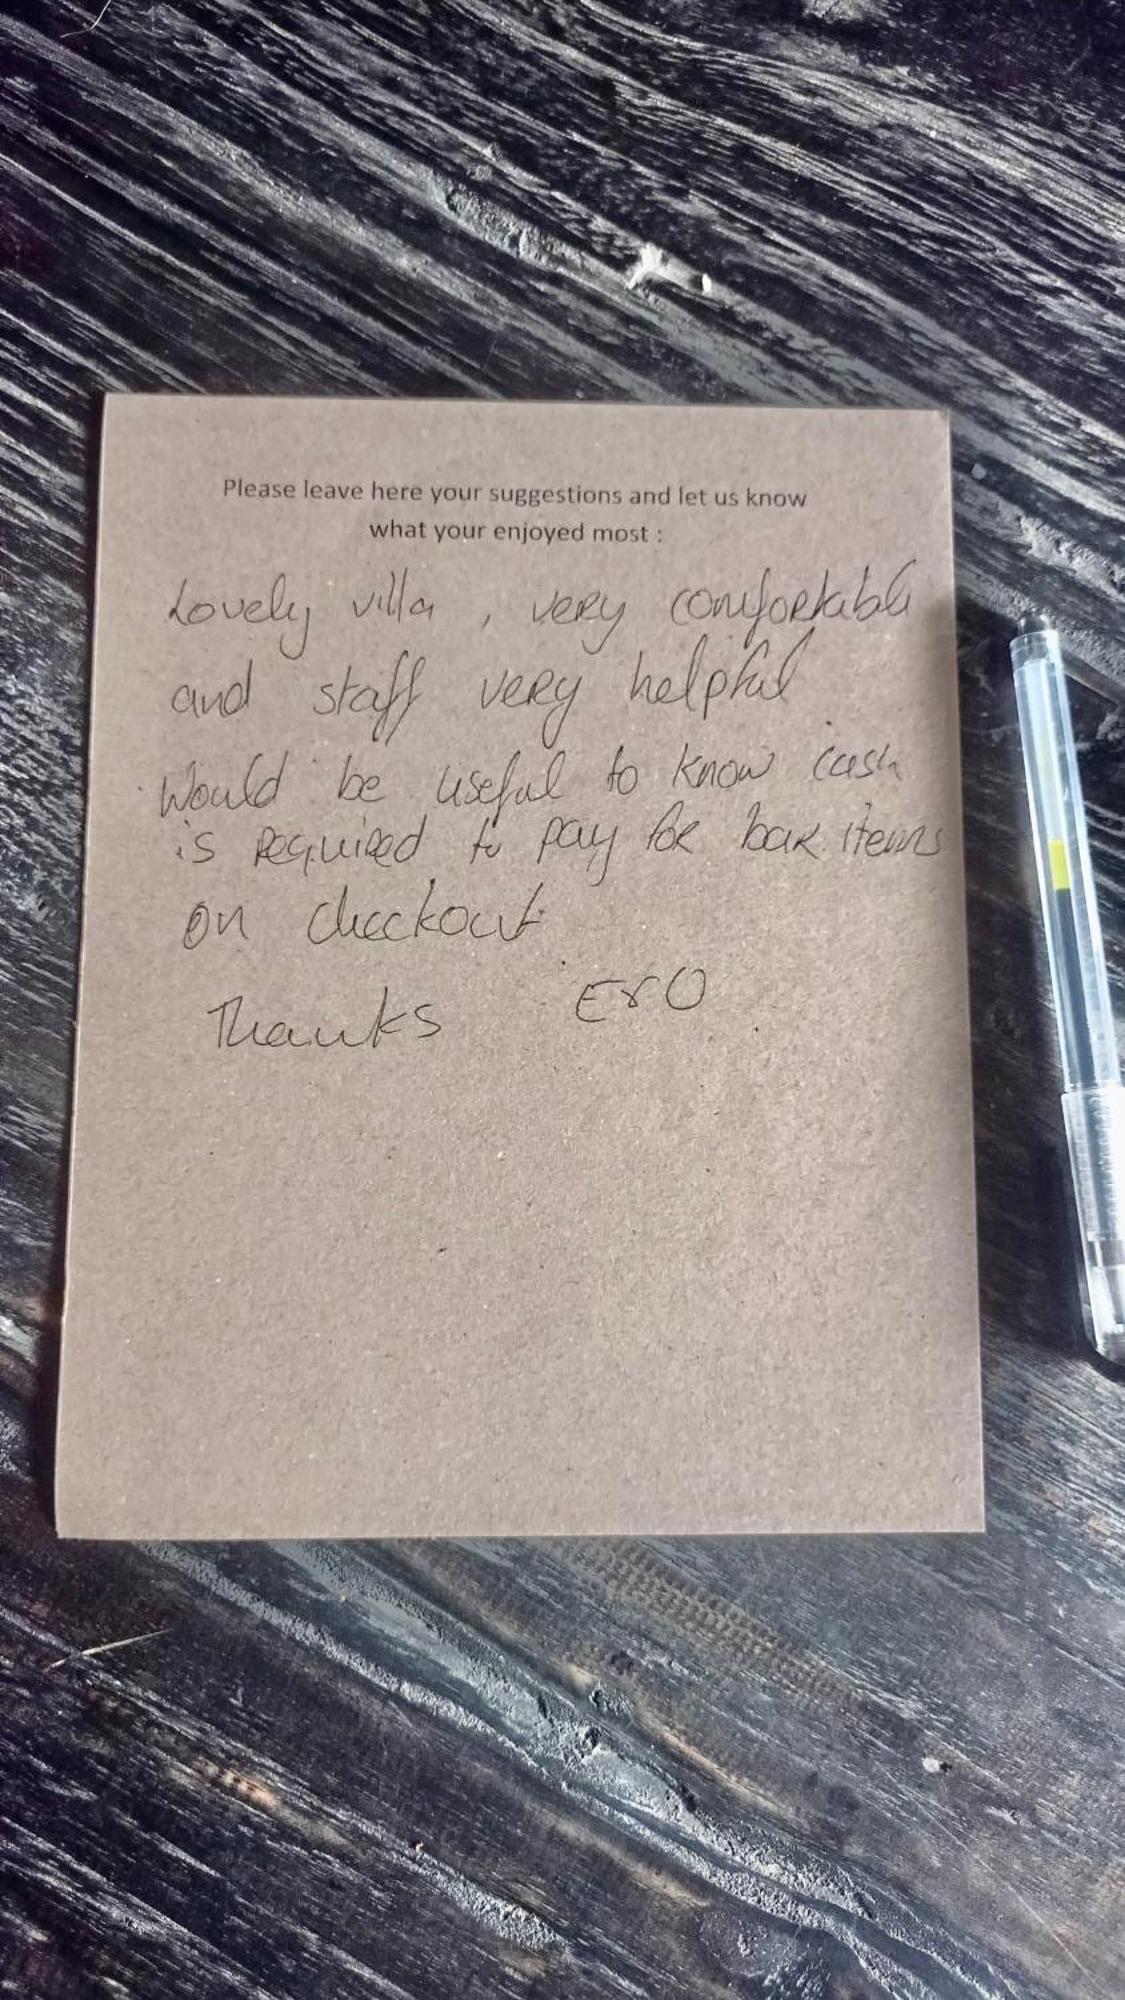 Please leave here your suggestions and let us know
what your enjoyed most :
Lovely villa , very comfortable
and staff very helpful
Would be useful to know cash
is required to pay for bar items
on checkout
Thanks